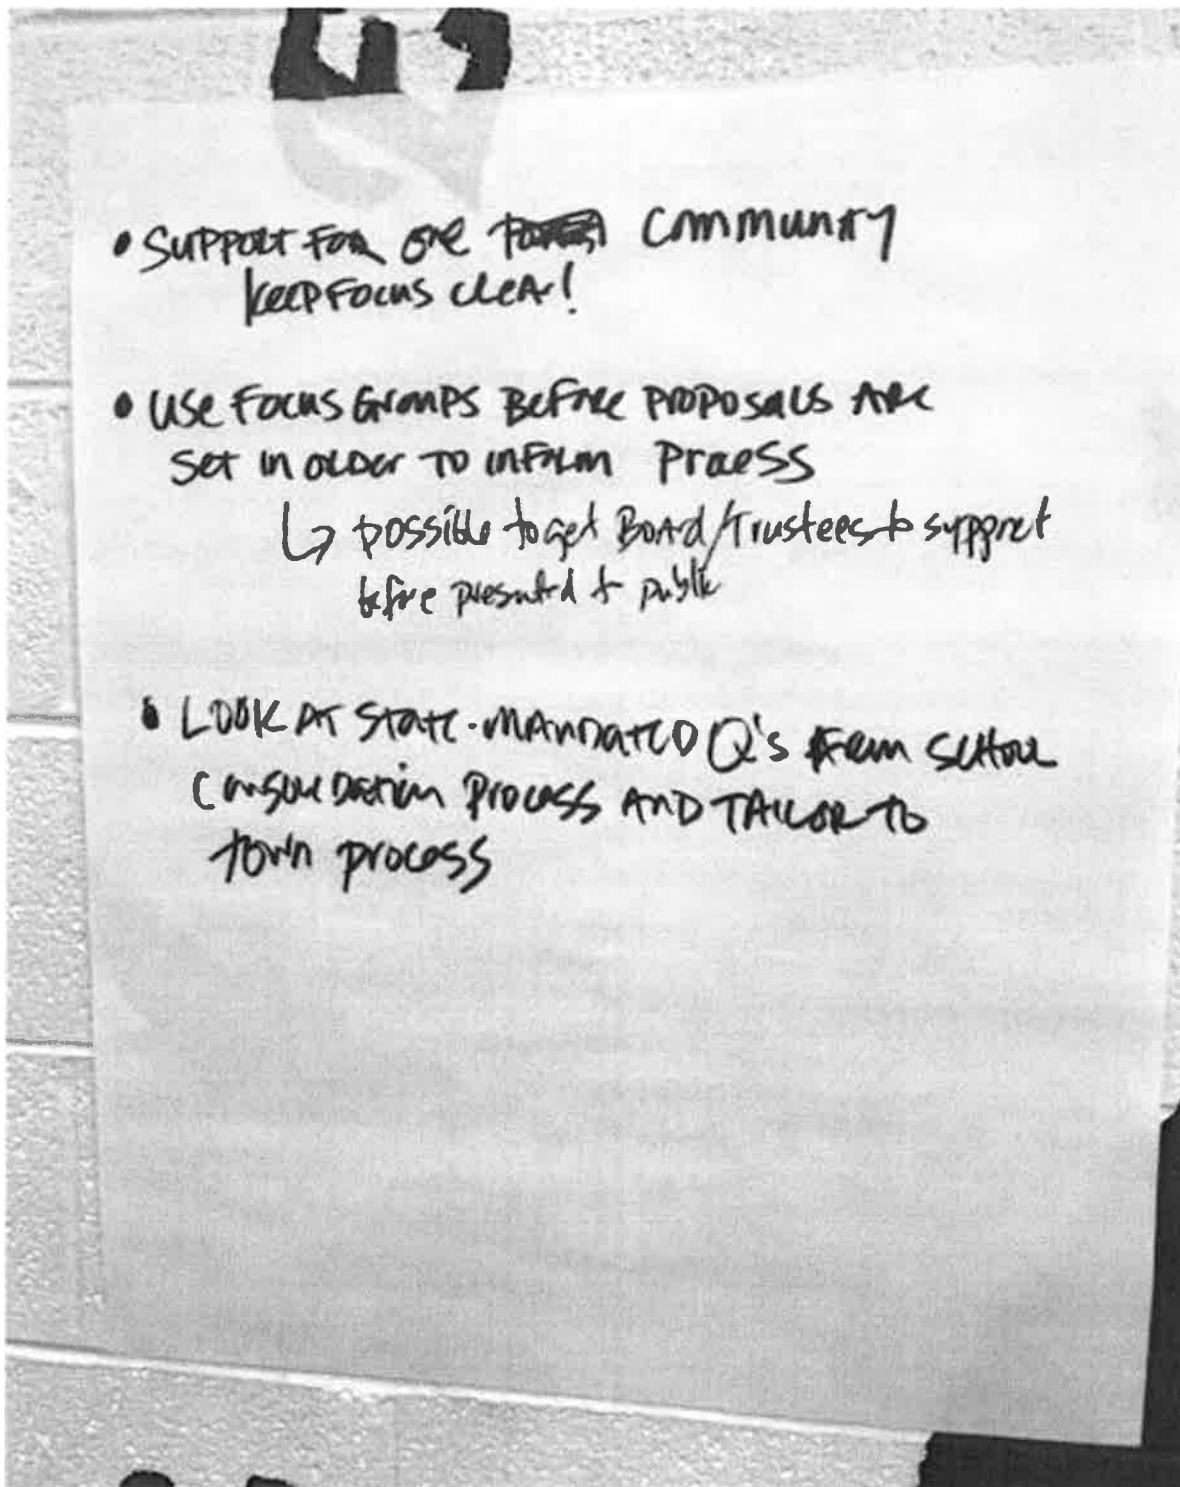 • SUPPORT FOR ONE COMMUNITY
KEEP FOCUS CLEAR!
• USE FOCUS GROUPS BEFORE PROPOSALS ARE
SET IN ORDER TO INFORM PROCESS
↳ possible to get Board/Trustees to support
before presented to public
• LOOK AT STATE-MANDATED Q's FROM SCHOOL
CONSOLIDATION PROCESS AND TAILOR TO
TOWN PROCESS